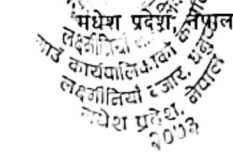 मधेश प्रदेश, नेपाल
लक्ष्मीनियाँ
गाउँ कार्यपालिकाको
लक्ष्मीनियाँ बजार, धनुषा
मधेश प्रदेश, नेपाल
२०७३